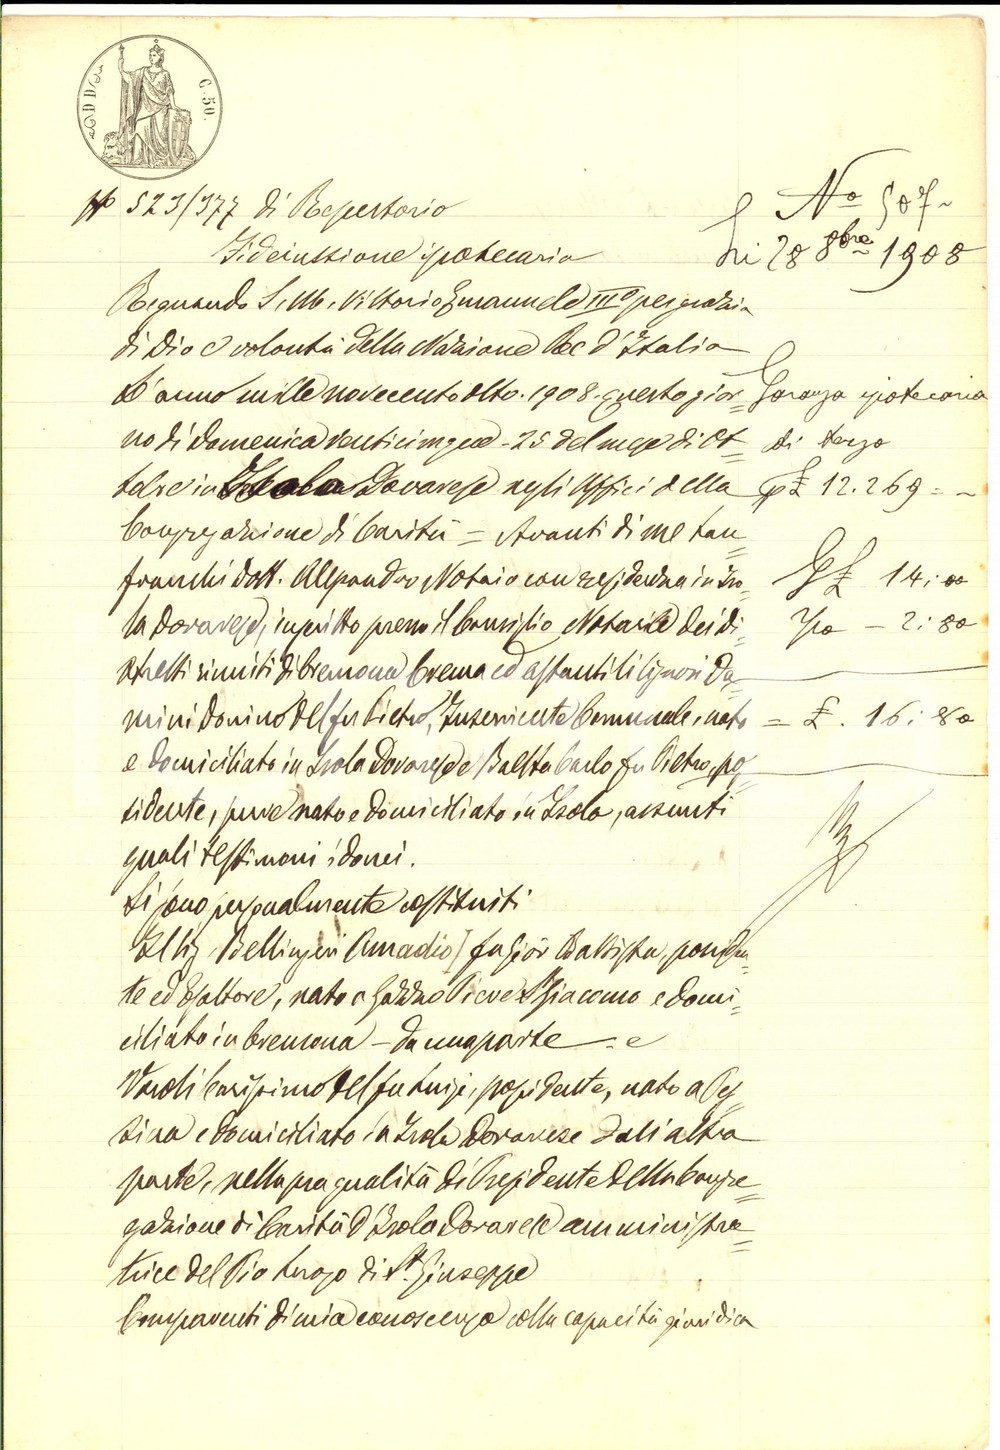 C. 50.
No 523/377 di Repertorio
Fideiussione ipotecaria
No 507
Li 28 8bre 1908
Regnando S. M. Vittorio Emanuele III° per grazia
di Dio e volontà della Nazione Re d'Italia
L'anno mille novecento otto. 1908. questo gior=
no di Domenica venticinque - 25 del mese di Ot=
tobre in Isola Dovarese negli Uffici della
Congregazione di Carità = Avanti di me Lan=
franchi dott. Alessandro Notaio con residenza in Iso=
la Dovarese, inscritto presso il Consiglio Notarile dei di=
stretti riuniti di Cremona Crema ed astanti li signori Da=
mini Donino del fu Pietro, Inserviente Comunale, nato
e domiciliato in Isola Dovarese e Balestra Carlo fu Pietro, pos=
sidente, pure nato e domiciliato in Isola, assunti
quali testimoni idonei.
Si sono personalmente costituiti
Il Sig Bellingeri Amadio fu Gior Battista, possiden=
te ed Esattore, nato a Gazzo Pieve S. Giacomo e domi=
ciliato in Cremona - da una parte - e
Varoli Carissimo del fu Luigi, possidente, nato a Pes=
sina e domiciliato in Isola Dovarese dall'altra
parte, nella sua qualità di Presidente della Congre=
gazione di Carità d'Isola Dovarese amministra=
trice del Pio Luogo di St. Giuseppe
Comparenti di mia conoscenza colla capacità giuridica
Garanzia ipotecaria
di terzo
p £ 12.269 =
£ 14:00
Ipo - 2:80
= £. 16:80